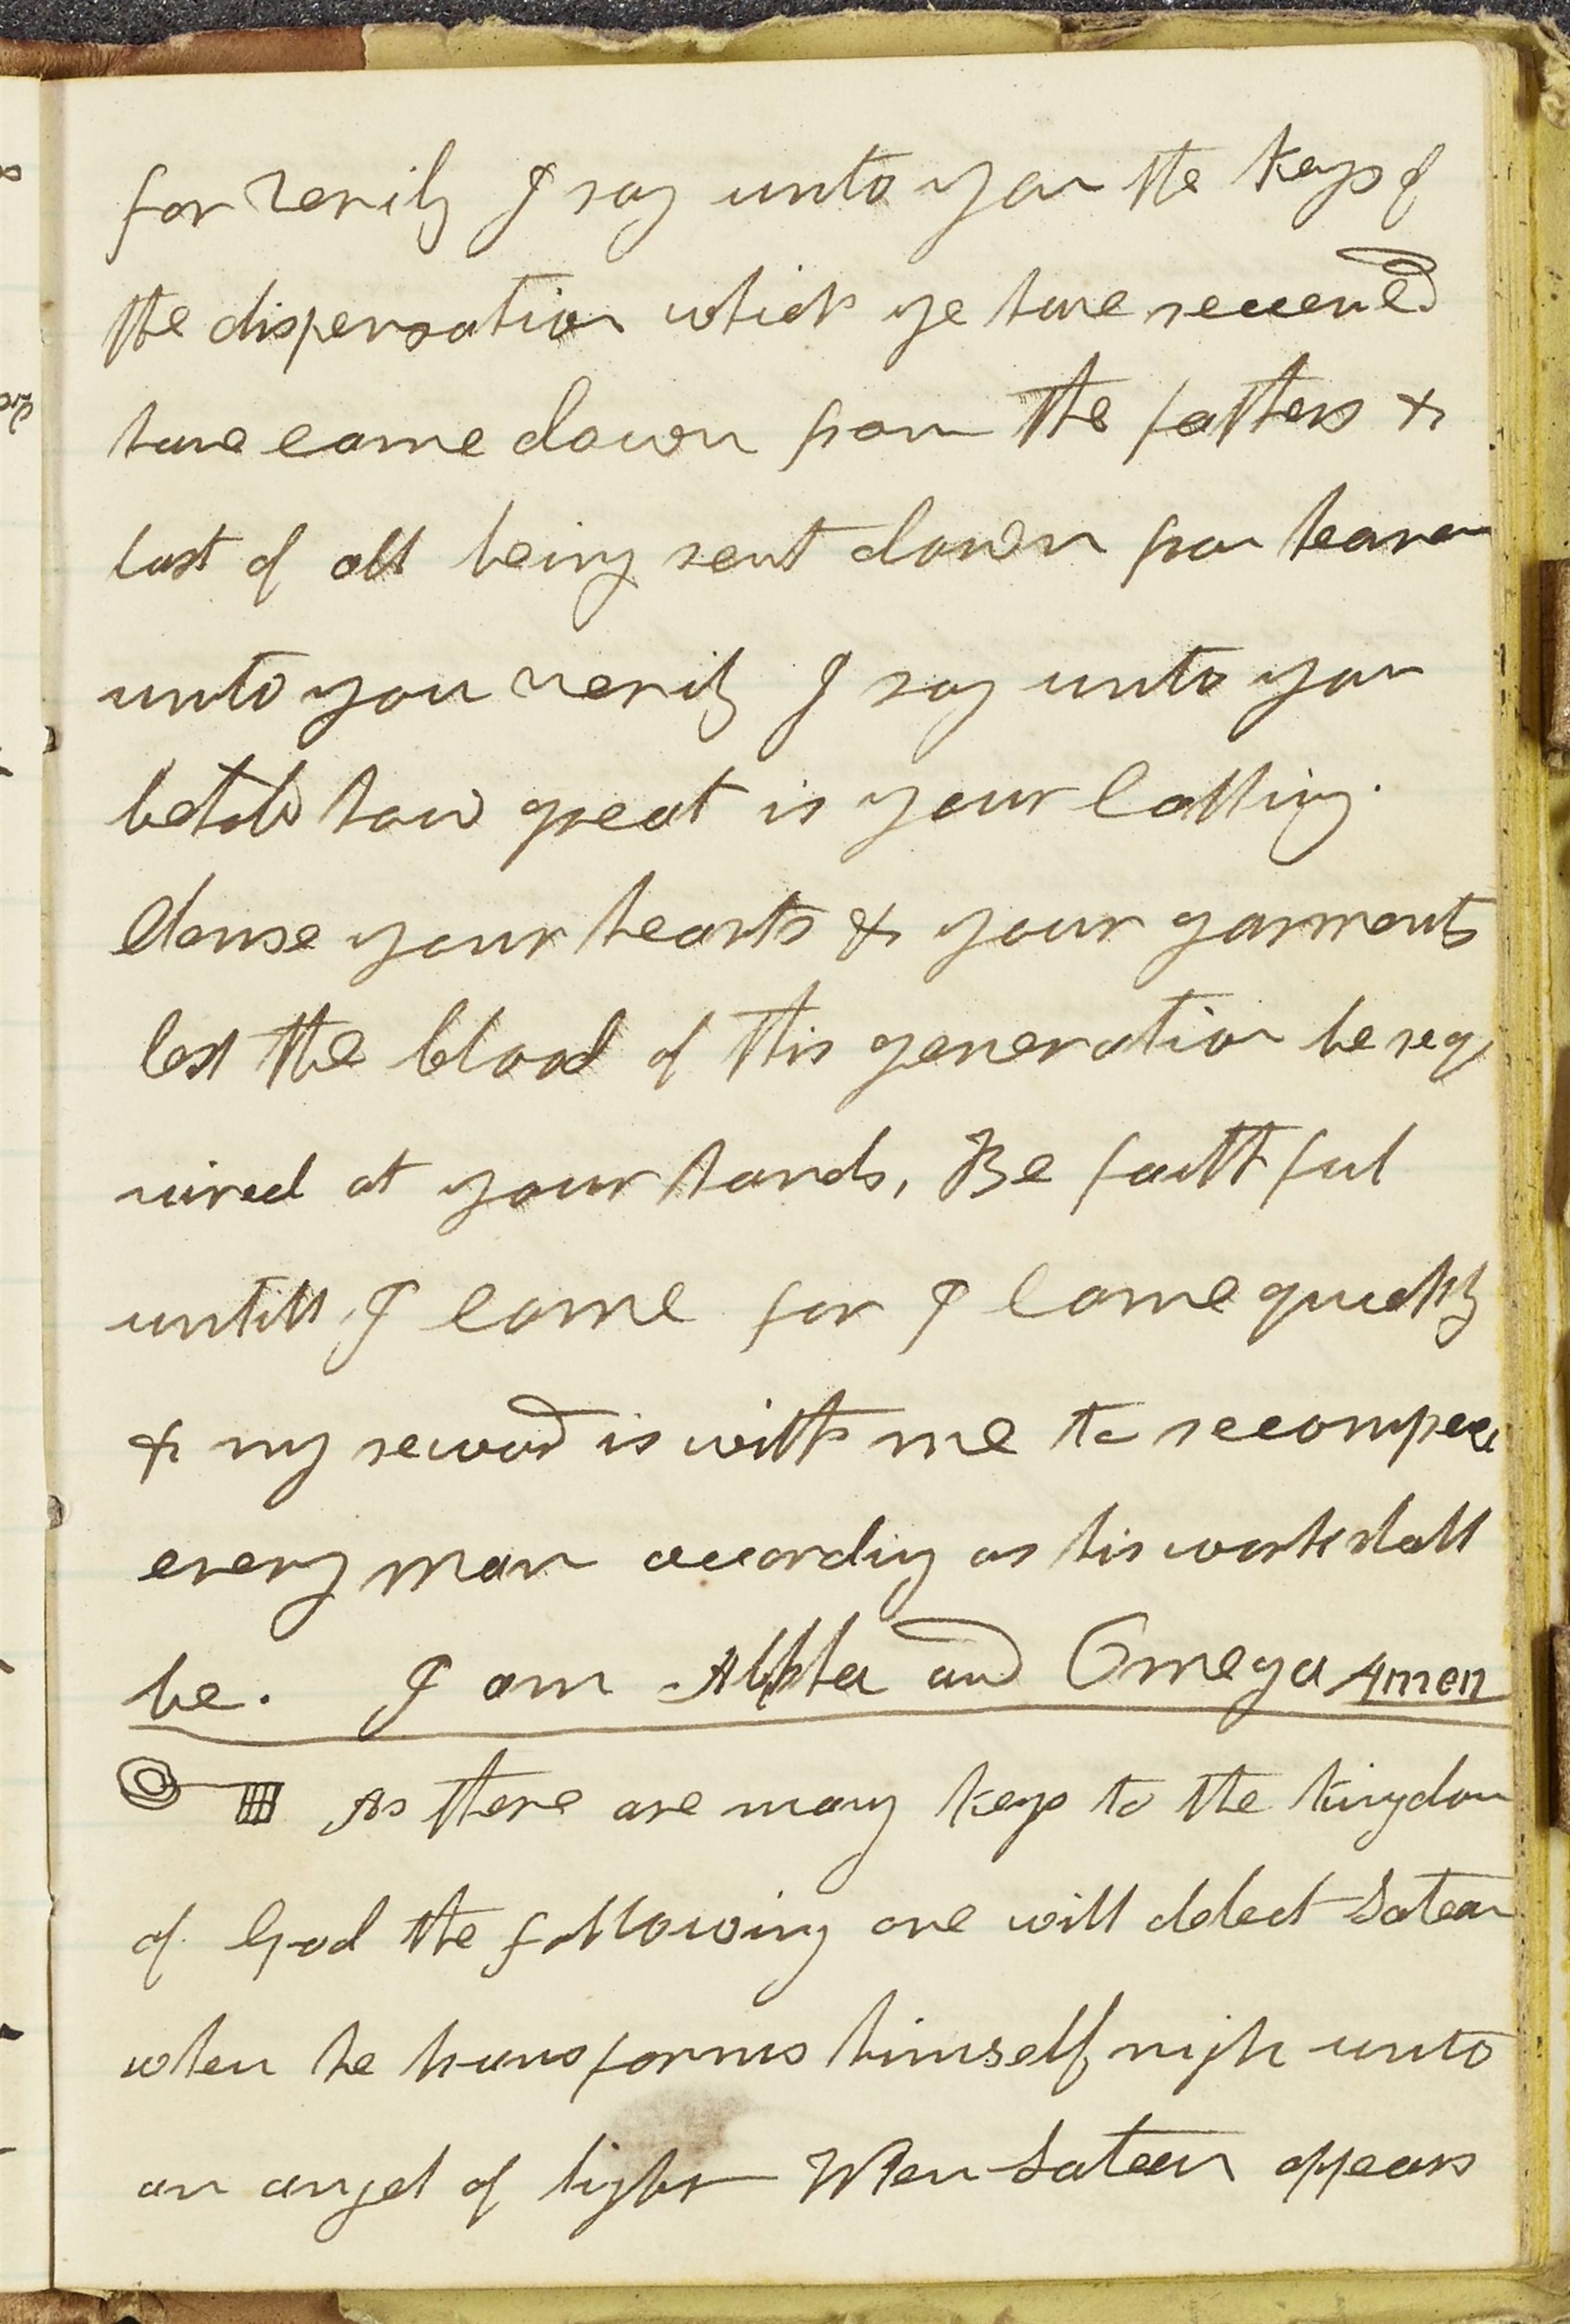 for verily I say unto you the keys of
the dispensation which ye have received
have come down from the fathers &
last of all being sent down from heaven
unto you verily I say unto you
behold how great is your calling.
Clense your hearts & your garments
lest the blood of this generation be req
uired at your hands, Be faithful
untill I come for I come quickly
& my reward is with me to recompece
every man according as his work shall
be. I am Alpha and Omega Amen
As there are many keys to the kingdom
of God the following one will detect Satean
when he transforms himself nigh unto
an angel of light When Satean appears